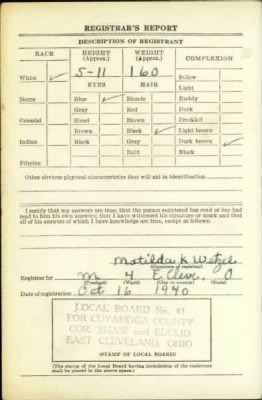 REGISTRAR'S REPORT
DESCRIPTION OF REGISTRANT
RACE HEIGHT (Approx.) WEIGHT (Approx.) COMPLEXION
White ✓ 5-11 160 Sallow
EYES HAIR Light
Negro Blue ✓ Blonde Ruddy
Gray Red Dark
Oriental Hazel Brown Freckled
Brown Black ✓ Light brown
Indian Black Gray Dark brown ✓
Bald Black
Filipino
Other obvious physical characteristics that will aid in identification
I certify that my answers are true; that the person registered has read or has had
read to him his own answers; that I have witnessed his signature or mark and that
all of his answers of which I have knowledge are true, except as follows:
Matilda K Wetzel
(Signature of registrar)
Registrar for M 4 E. Cleve. O
(Precinct) (Ward) (City or county) (State)
Date of registration Oct 16 1940
LOCAL BOARD No. 41
FOR CUYAHOGA COUNTY
COR. SHAW and EUCLID
EAST CLEVELAND, OHIO
(STAMP OF LOCAL BOARD)
(The stamp of the Local Board having jurisdiction of the registrant
shall be placed in the above space.)